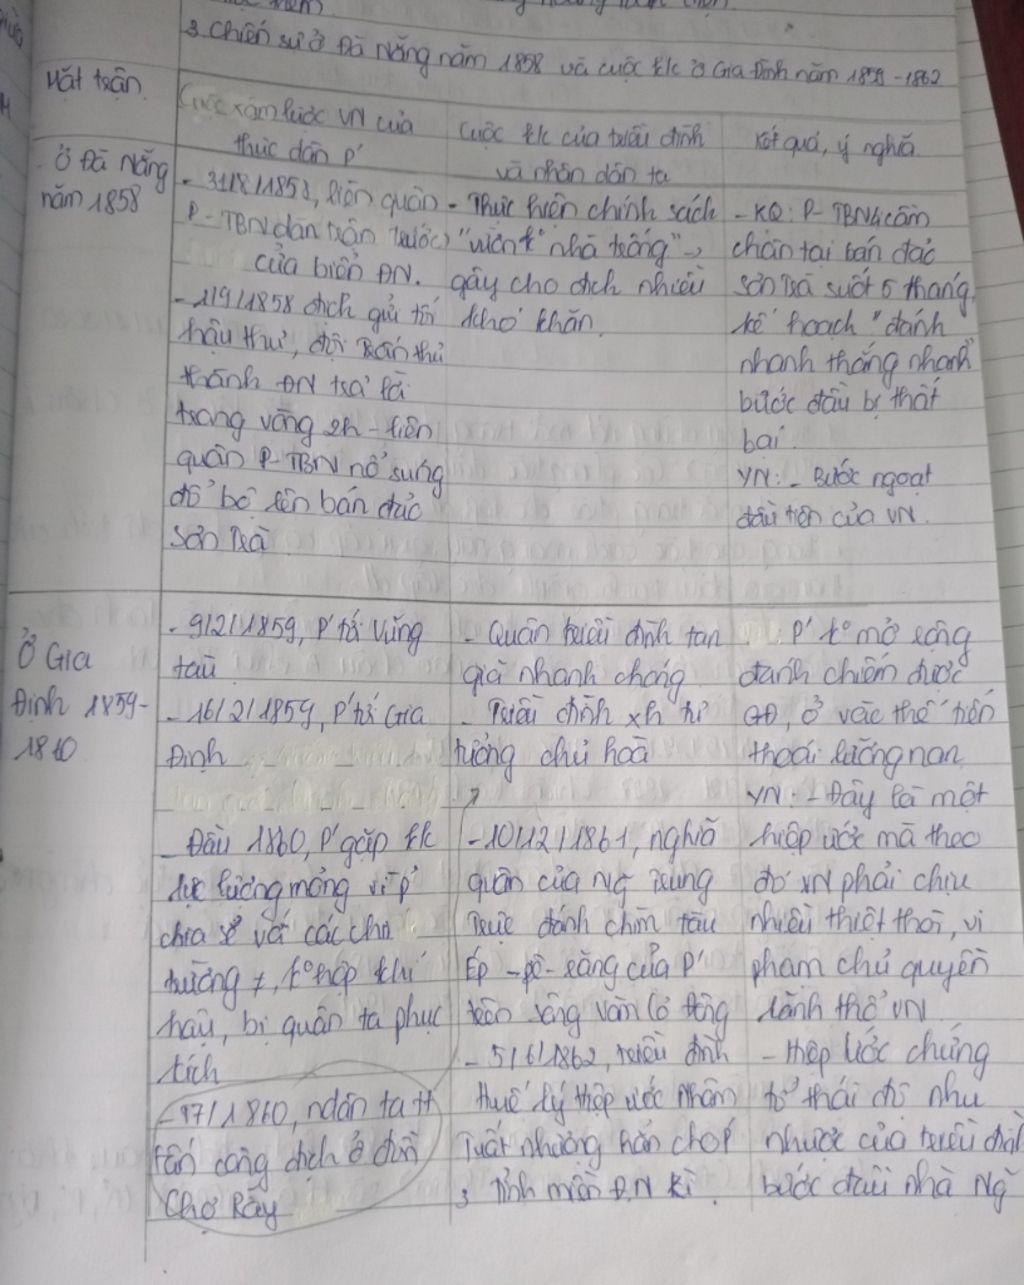 3. Chiến sự ở Đà Nẵng năm 1858 và cuộc k/c ở Gia Định năm 1859 - 1862
Mặt trận
Cuộc xâm lược VN của
thực dân P'
Cuộc k/c của triều đình
và nhân dân ta
Kết quả, ý nghĩa
Ở Đà Nẵng
năm 1858
- 31/8/1858, liên quân
P - TBN dàn trận trước
cửa biển ĐN.
- 1/9/1858 địch gửi tối
hậu thư, đòi trấn thủ
thành ĐN trả lời
trong vòng 2h - liên
quân P - TBN nổ súng
đổ bộ lên bán đảo
Sơn Trà
- Thực hiện chính sách
"vườn k° nhà trống" →
gây cho địch nhiều
khó khăn.
- KQ: P - TBN cầm
chân tại bán đảo
Sơn Trà suốt 5 tháng,
kế hoạch "đánh
nhanh thắng nhanh"
bước đầu bị thất
bại.
YN: - Bước ngoặt
đầu tiên của VN.
Ở Gia
Định 1859 -
1860
- 9/2/1859, P' tới Vũng
tàu
- 16/2/1859, P' tới Gia
Định
- Đầu 1860, P' gặp k/k
lực lượng mỏng vì P'
chia sẻ với các chiến
trường ≠, k° hợp khí
hậu, bị quân ta phục
kích
- 7/1860, ndân ta
tấn công địch ở đồn
Chợ Rẫy
- Quân triều đình tan
giã nhanh chóng
- Triều đình xh tư
tưởng chủ hoà
- 10/12/1861, nghĩa
quân của Ng Trung
Trực đánh chìm tàu
Ét-pê-răng của P'
trên sông Vàm Cỏ Đông
- 5/6/1862, triều đình
Huế ký Hiệp ước Nhâm
Tuất nhượng hẳn cho P'
3 tỉnh miền Đ.N Kì.
P' k° mở rộng
đánh chiếm được
GĐ, ở vào thế tiến
thoái lưỡng nan
YN: - Đây là một
hiệp ước mà theo
đó VN phải chịu
nhiều thiệt thòi, vi
phạm chủ quyền
lãnh thổ VN.
- Hiệp ước chứng
tỏ thái độ nhu
nhược của triều đình
bước đầu nhà Ng